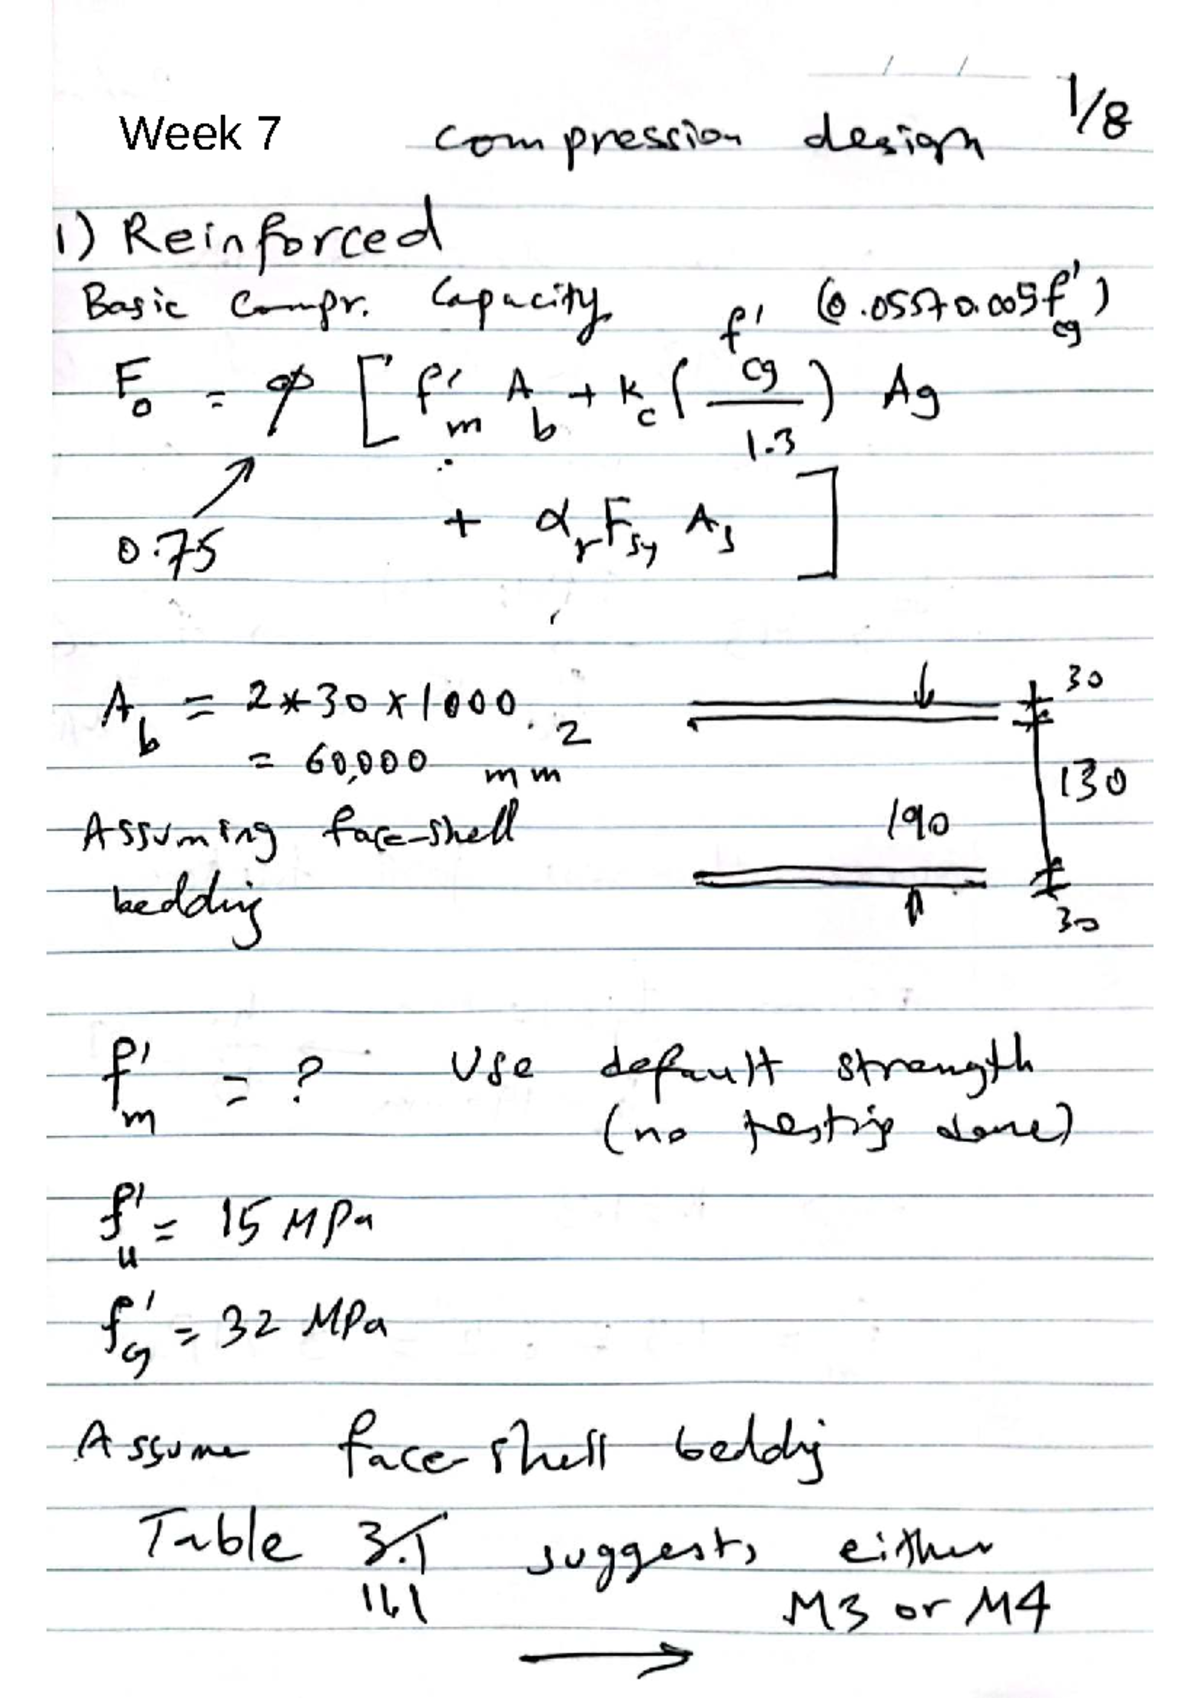 1/8
Week 7 compression design
1) Reinforced
Basic Compr. Capacity (0.055+0.005f'cg)
Fo = φ [ f'm Ab + kc ( f'cg / 1.3 ) Ag
+ αr Fsy As ]
0.75
Ab = 2*30×1000
= 60,000 mm²
Assuming face-shell
bedding
30
130
190
30
f'm = ? Use default strength
(no testing done)
f'u = 15 MPa
f'g = 32 MPa
Assume face-shell bedding
Table 3.1 suggests either
161 M3 or M4